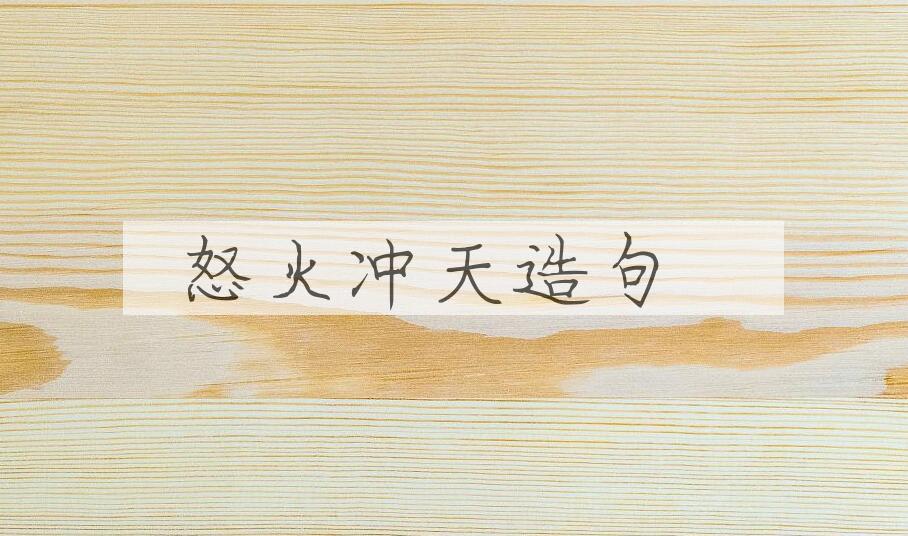 怒火冲天造句